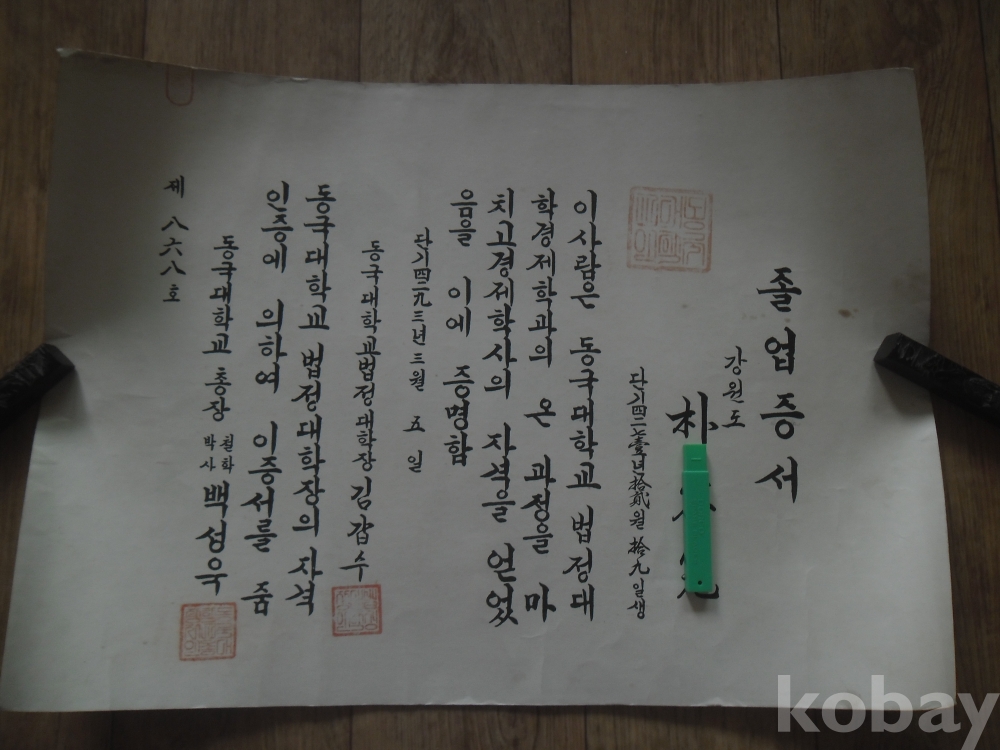 졸업증서
강원도
朴
단기四二七壹년拾貳월拾九일생
이사람은 동국대학교 법정대
학경제학과의 온 과정을 마
치고경제학사의 자격을 얻었
음을 이에 증명함
단기四二九三년三월 五일
동국대학교법정대학장 김갑수
동국대학교 법정대학장의 자격
인증에 의하여 이증서를 줌
동국대학교 총장 철학박사 백성욱
제八六八호
kobay